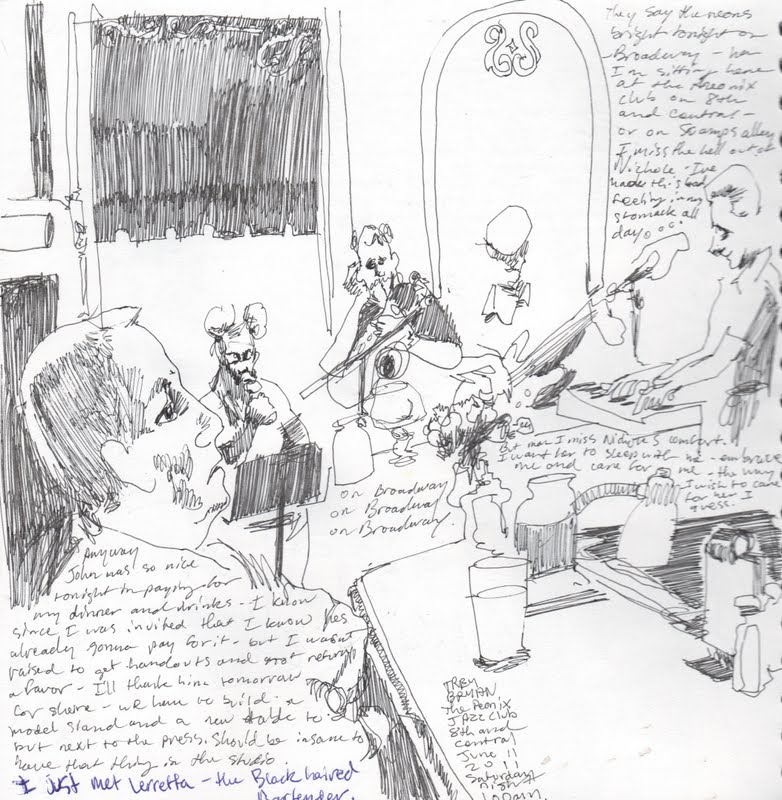 They say the neons
bright tonight on
Broadway - her
I'm sitting here
at the Pheonix
club on 8th
and central -
or on Stamps alley
I miss the hell out of
Nichole - I've
had this bad
feeling in my
stomack all
day...
But man I miss Nichole's comfort.
I want her to sleep with me - embrace
me and care for me - the way
I wish to care
for her I
guess.
on Broadway
on Broadway
on Broadway.
Anyway
John was so nice
tonight in paying for
my dinner and drinks - I know
since I was invited that I know hes
already gonna pay for it - but I wasnt
raised to get handouts and not return
a favor - I'll thank him tomorrow
for shore - we have to build a
model stand and a new table to
put next to the press. Should be insane to
have that thing in the studio.
I just met Lerretta - the Black haired
Bartender.
TREY
BRYAN
The Peonix
JAZZ Club
8th and
central
June 11
2011
Saturday
Night
1:00am.